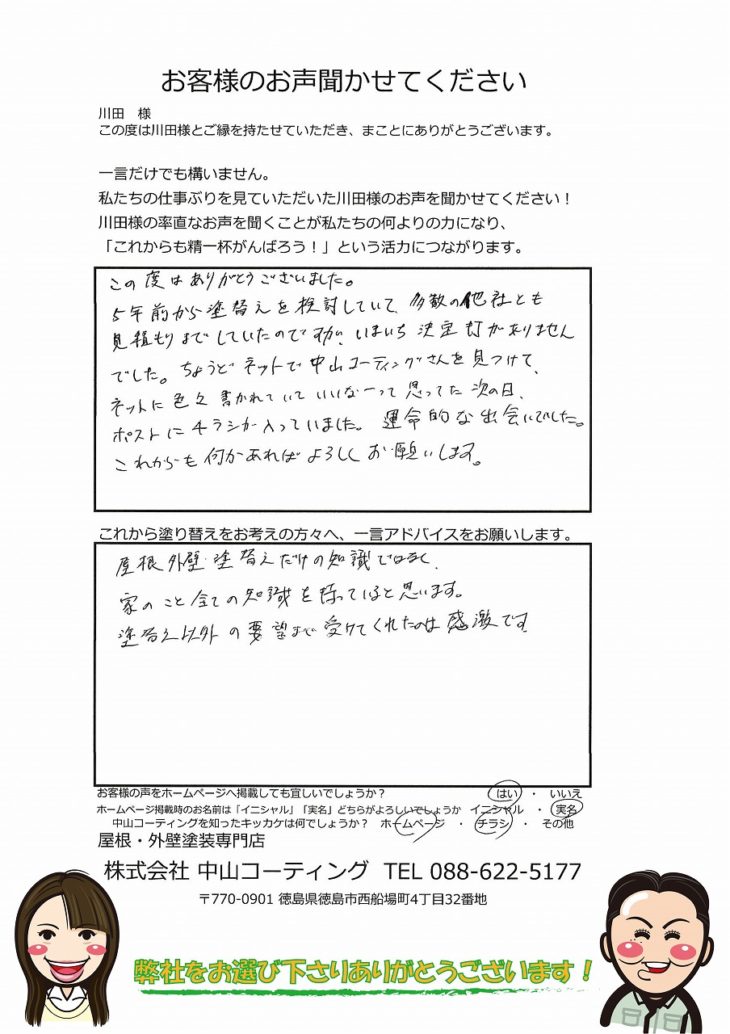 お客様のお声聞かせてください
川田　様
この度は川田様とご縁を持たせていただき、まことにありがとうございます。
一言だけでも構いません。
私たちの仕事ぶりを見ていただいた川田様のお声を聞かせてください！
川田様の率直なお声を聞くことが私たちの何よりの力になり、
「これからも精一杯がんばろう！」という活力につながります。
この度はありがとうございました。
5年前から塗替えを検討していて、多数の他社とも
見積もりまでしていたのですが、いまいち決定打がありません
でした。ちょうどネットで中山コーティングさんを見つけて、
ネットに色々書かれていていいなーって思ってた次の日、
ポストにチラシが入っていました。運命的な出会いでした。
これからも何かあればよろしくお願いします。
これから塗り替えをお考えの方々へ、一言アドバイスをお願いします。
屋根外壁・塗替えだけの知識ではなく、
家のこと全ての知識を持っていると思います。
塗替え以外の要望まで受けてくれたのは感激です
お客様の声をホームページへ掲載しても宜しいでしょうか？　はい　・　いいえ
ホームページ掲載時のお名前は「イニシャル」「実名」どちらがよろしいでしょうか　イニシャル　・　実名
中山コーティングを知ったキッカケは何でしょうか？　ホームページ　・　チラシ　・　その他
屋根・外壁塗装専門店
株式会社 中山コーティング　TEL 088-622-5177
〒770-0901 徳島県徳島市西船場町4丁目32番地
弊社をお選び下さりありがとうございます！